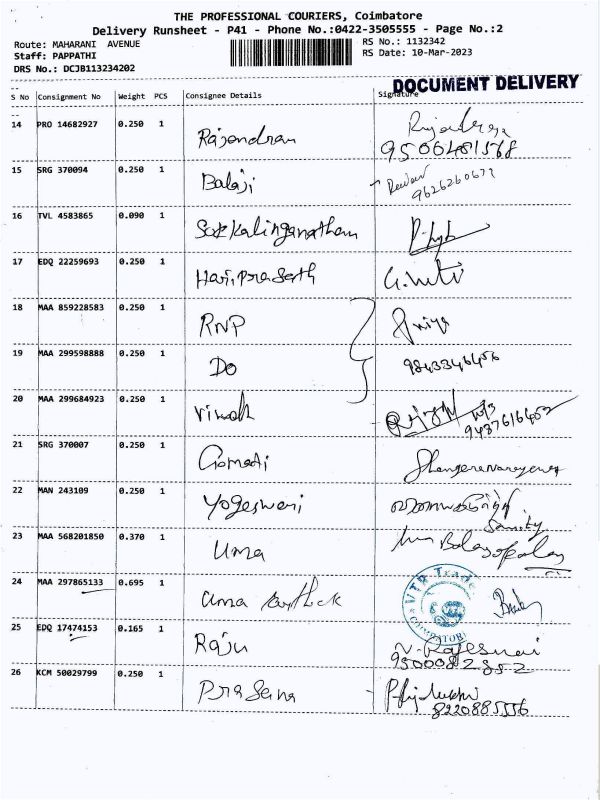 THE PROFESSIONAL COURIERS, Coimbatore
Delivery Runsheet - P41 - Phone No.:0422-3505555 - Page No.:2
Route: MAHARANI AVENUE
RS No.: 1132342
Staff: PAPPATHI
RS Date: 10-Mar-2023
DRS No.: DCJB113234202
DOCUMENT DELIVERY
S No Consignment No Weight PCS Consignee Details Signature
14 PRO 14682927 0.250 1 Rajendran
9506481568
15 SRG 370094 0.250 1 Balaji
9626260677
16 TVL 4583865 0.090 1
17 EDQ 22259693 0.250 1 Hari Prasath
18 MAA 859228583 0.250 1 RNP Priya
19 MAA 299598888 0.250 1 DO 9843346456
20 MAA 299684923 0.250 1
21 SRG 370007 0.250 1 Gomadi
22 MAN 243109 0.250 1 Yogeswari
23 MAA 568201850 0.370 1 Uma
24 MAA 297865133 0.695 1 Uma VTR Trade
COIMBATORE
25 EDQ 17474153 0.165 1 Raju
9500082852
26 KCM 50029799 0.250 1 Prasana
8220885556